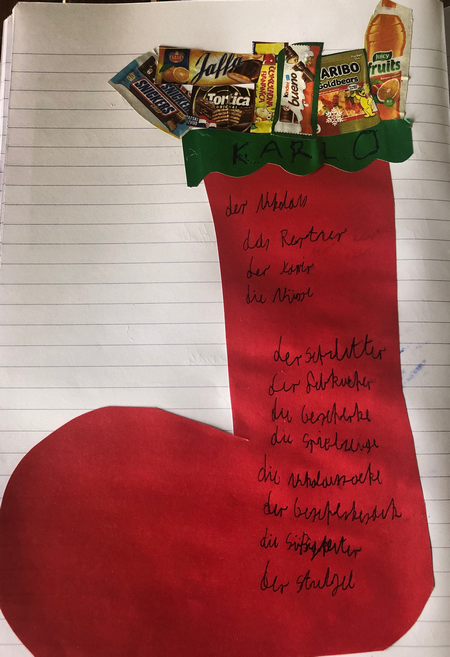 SNICKERS
Jaffa
Tortica
BANANICA
kinder
bueno
HARIBO
Goldbears
JUICY
fruits
KARLO
der Nikolaus
das Rentner
der
die Nüsse
der Schlitten
der Lebkuchen
die Geschenke
die Spielzeuge
die Nikolaussocke
der Geschenkesack
die
der Striezel